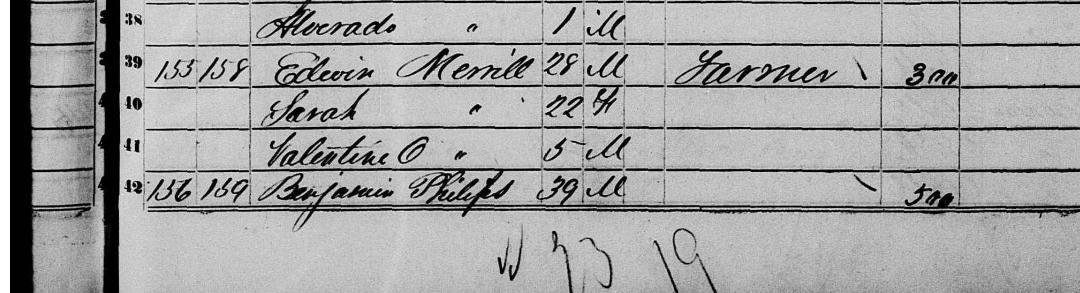 38 Alverado " 1 M
39 155 158 Edwin Merrill 28 M Farmer \ 300
40 Sarah " 22 F
41 Valentine O " 5 M
42 156 159 Benjamin Philips 39 M \ 500
73 19